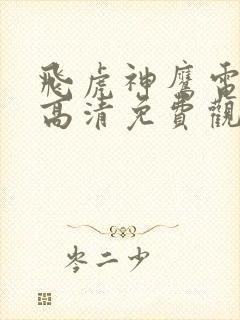 飛虎神鷹電
高清免費觀
岑二少